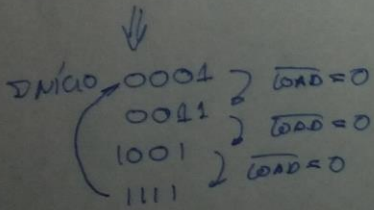 INÍCIO 0001 LOAD = 0
0011 LOAD = 0
1001 LOAD = 0
1111